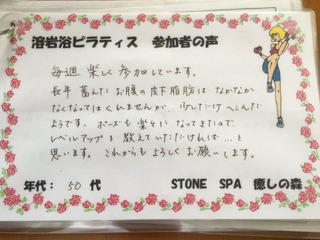 溶岩浴ピラティス 参加者の声
毎週 楽しく参加しています。
長年 蓄えた お腹の皮下脂肪は なかなか
なくなってはくれませんが、少しだけ へこんだ
ようです。ポーズも楽になってきたので、
レベルアップを教えていただければ…と
思います。これからもよろしくお願いします。
年代: 50 代 STONE SPA 癒しの森